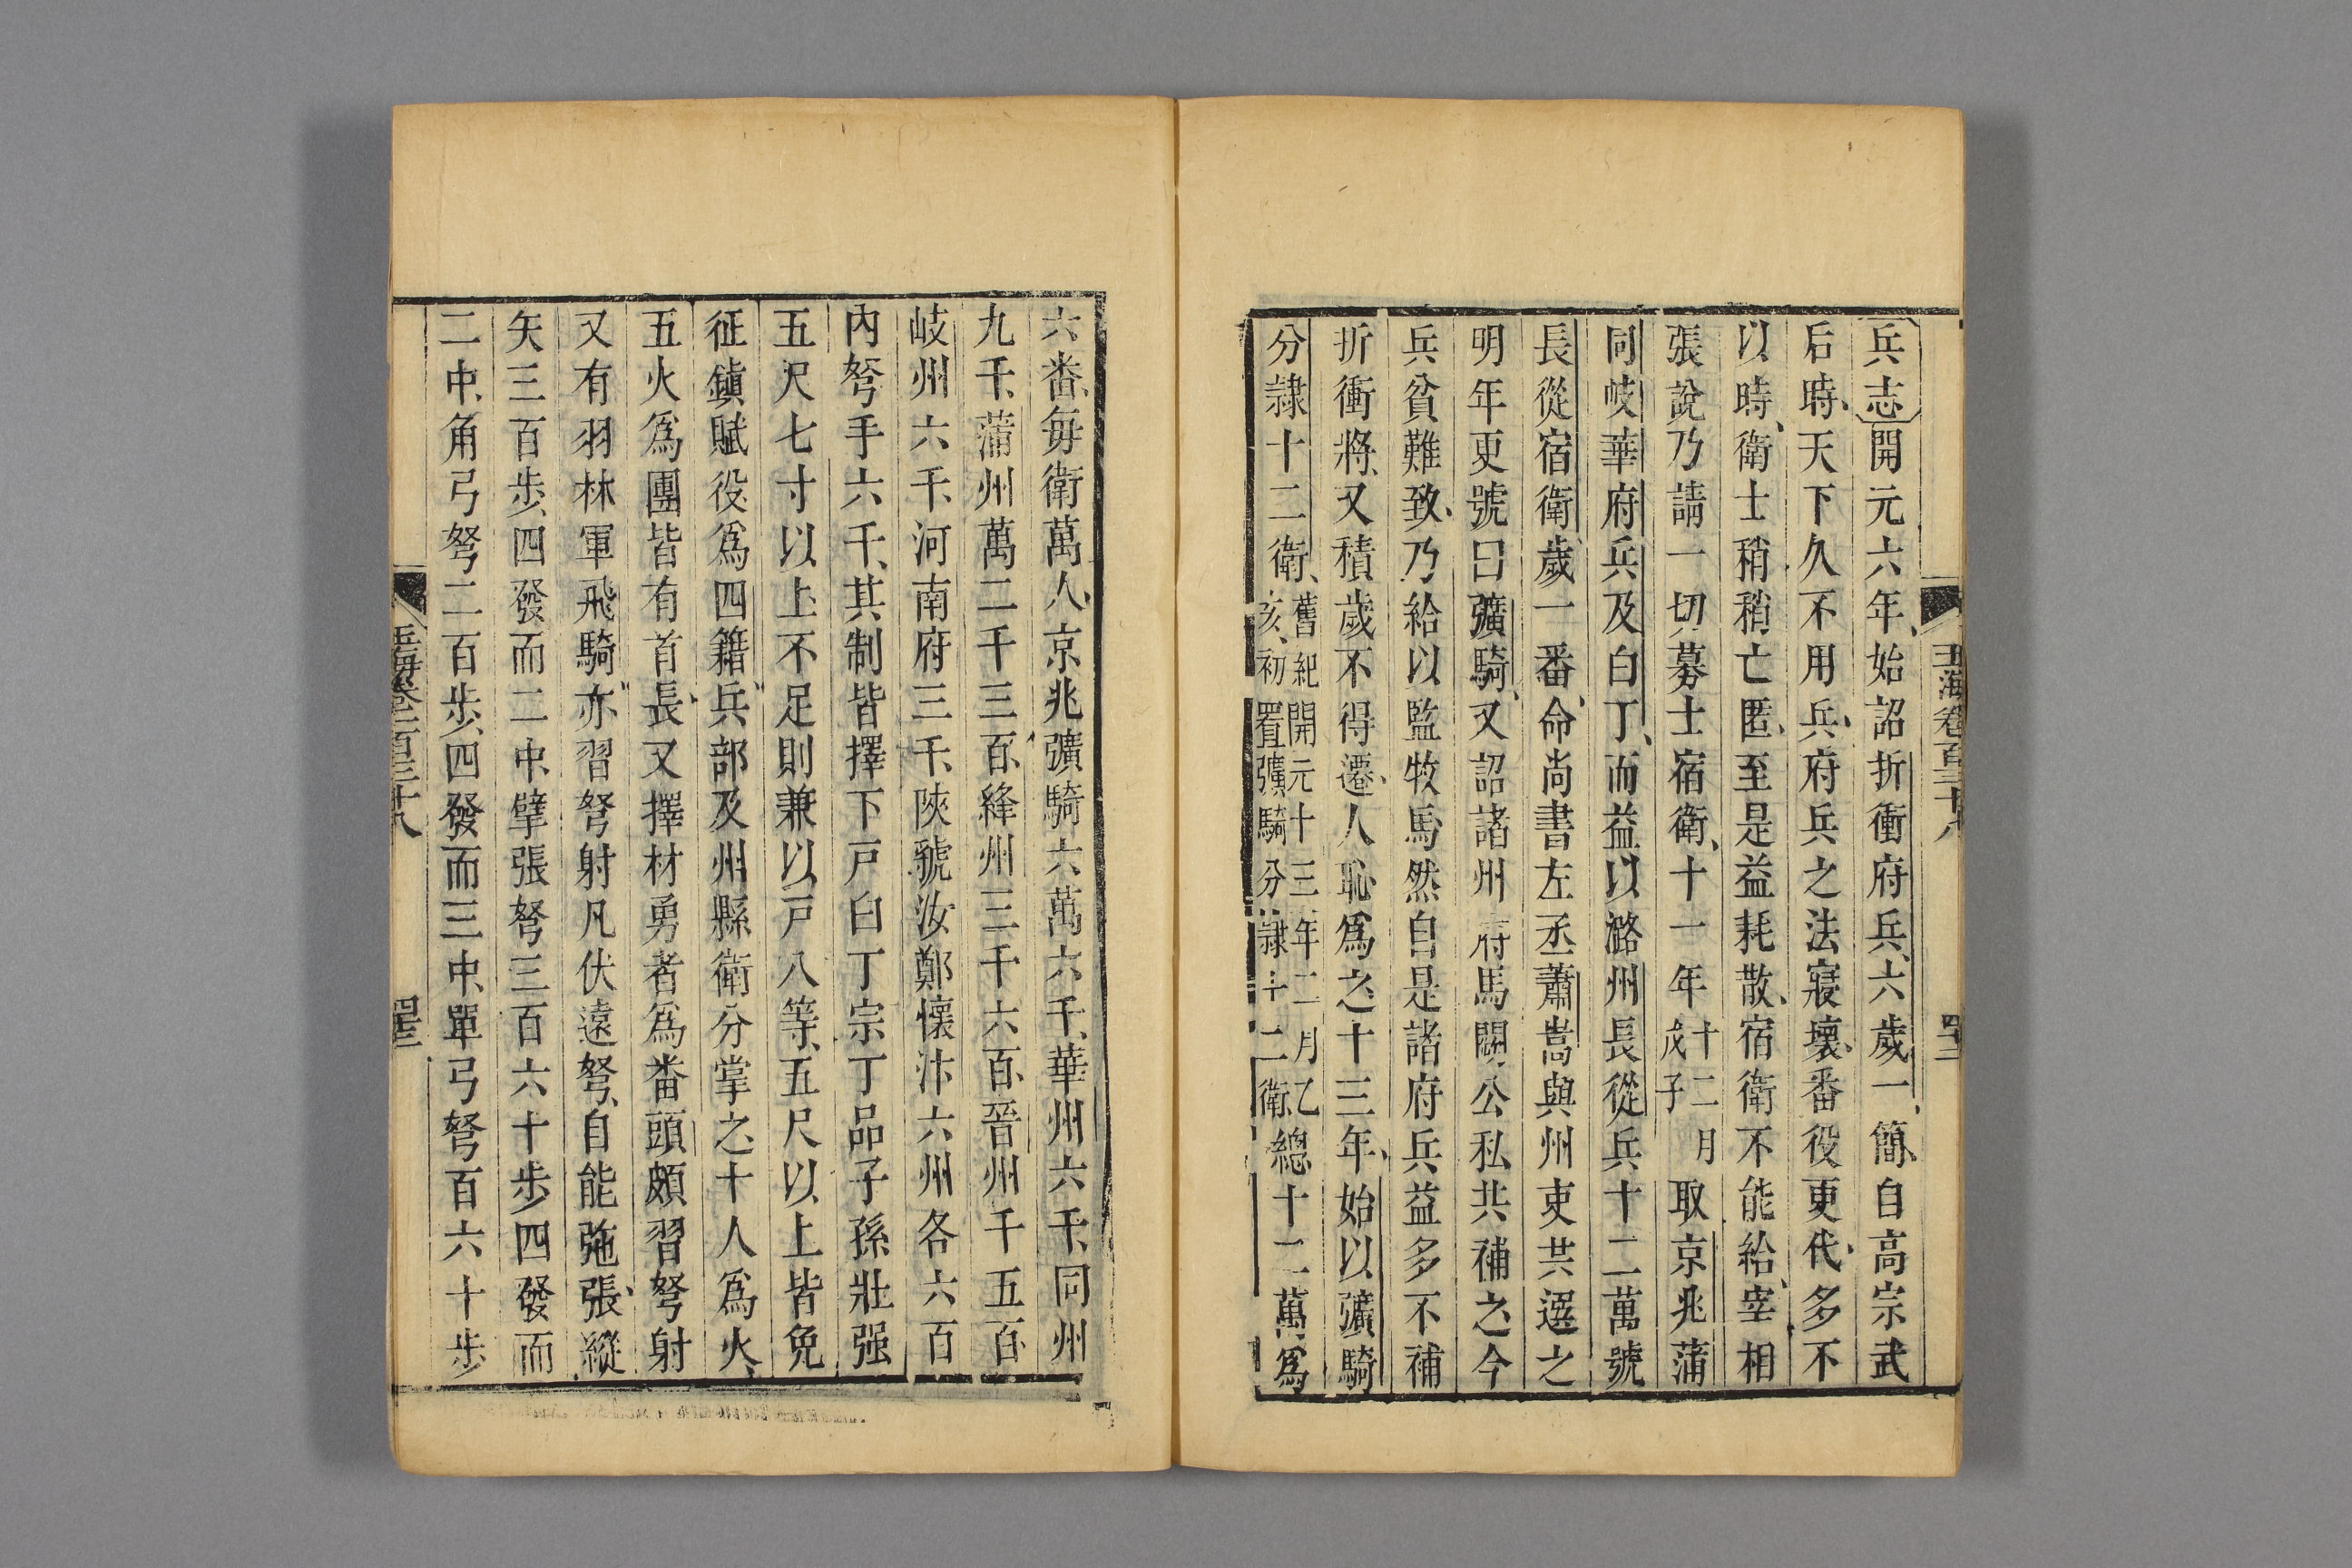 玉海卷百三十八
兵志開元六年、始詔折衝府兵、六歲一簡、自高宗武
后時、天下久不用兵、府兵之法寖壞、番役更代、多不
以時、衛士稍稍亡匿、至是益耗散、宿衛不能給、宰相
張說乃請一切募士宿衛、十一年十二月戊子取京兆蒲
同岐華府兵及白丁、而益以潞州長從兵十二萬號
長從宿衛、歲一番、命尚書左丞蕭嵩與州吏共選之
明年更號曰彍騎、又詔諸州府馬闕、公私共補之今
兵貧難致、乃給以監牧馬然自是諸府兵益多不補
折衝將、又積歲不得遷、人恥爲之、十三年、始以彍騎
分隸十二衛、舊紀開元十三年二月乙亥、初置彍騎分隸十二衛總十二萬爲
六番、每衛萬人、京兆彍騎六萬六千、華州六千、同州
九千、蒲州萬二千三百、絳州三千六百、晉州千五百
岐州六千、河南府三千、陝虢汝鄭懷汴六州各六百
內弩手六千、其制皆擇下戸白丁宗丁品子孫壯强
五尺七寸以上不足則兼以戸八等、五尺以上皆免
征鎮賦役爲四籍兵部及州縣衛分掌之、十人爲火、
五火爲團皆有首長、又擇材勇者爲番頭頗習弩射
又有羽林軍飛騎、亦習弩射凡伏遠弩、自能弛張、縱
矢三百步、四發而二中、擘張弩三百六十步四發而
二中、角弓弩二百步、四發而三中、單弓弩百六十步
玉海卷一百三十八